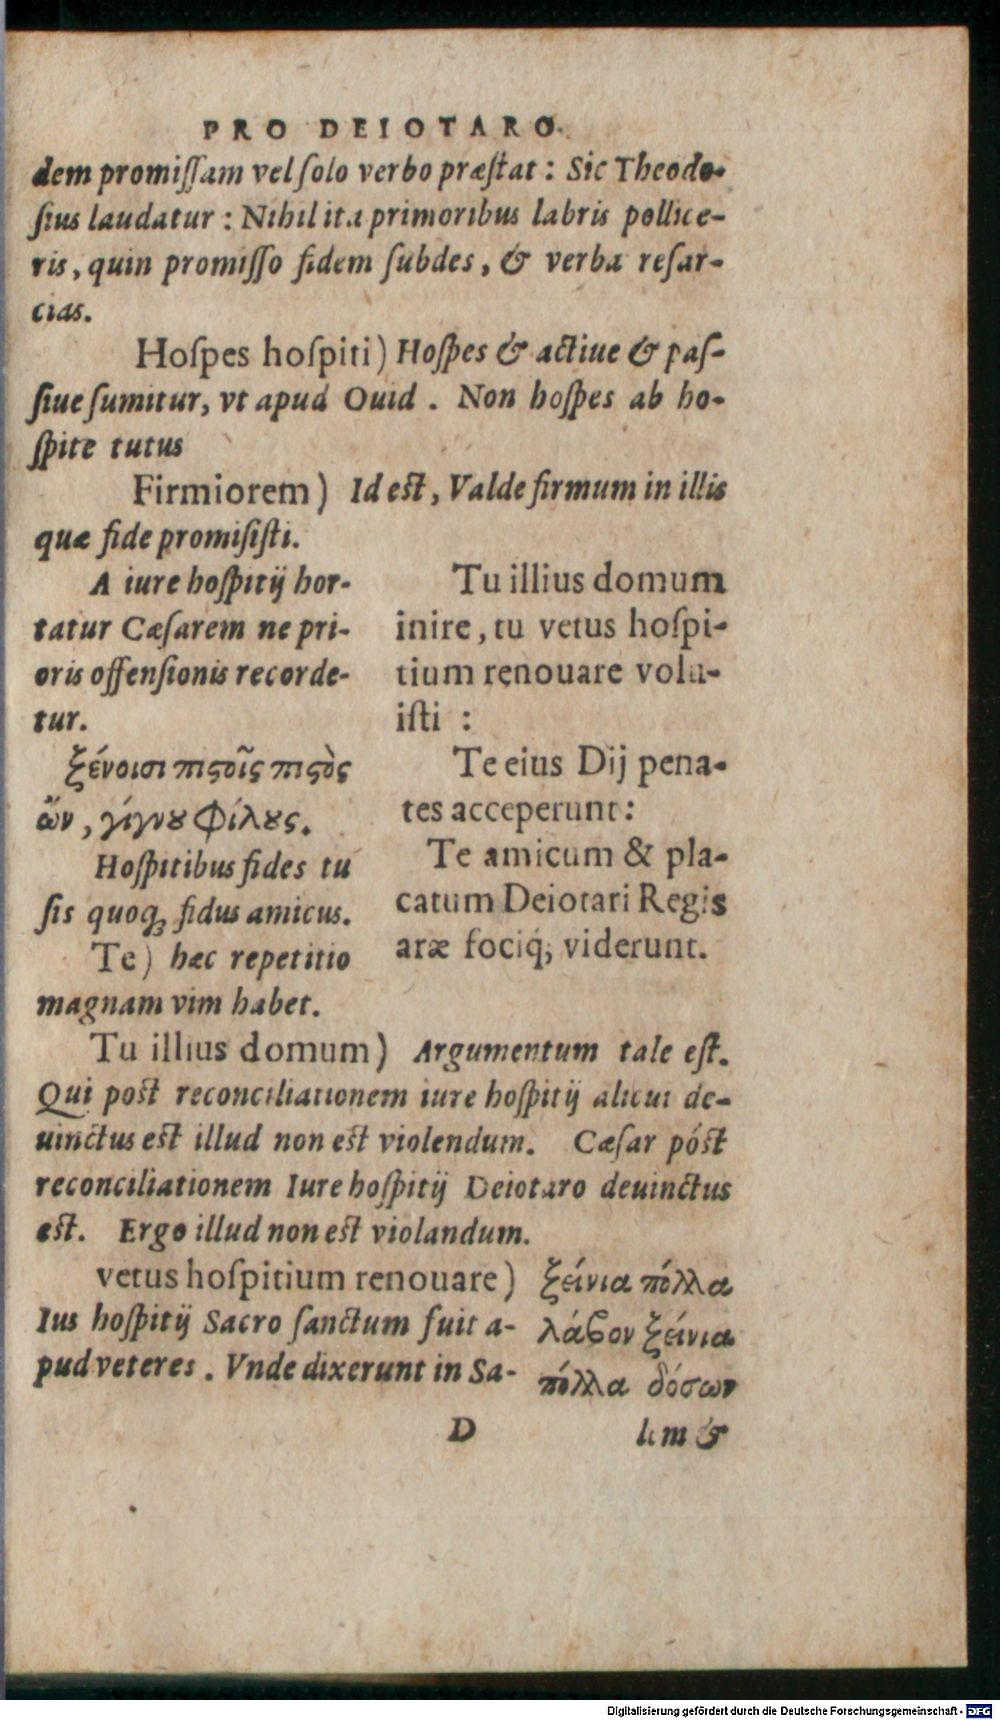 PRO DEIOTARO.
dem promiſſam vel ſolo verbo præſtat : Sic Theodo-
ſius laudatur : Nihil ita primoribus labris pollice-
ris, quin promiſſo fidem ſubdes, & verba reſar-
cias.
Hoſpes hoſpiti) Hoſpes & actiue & paſ-
ſiue ſumitur, vt apud Ouid . Non hoſpes ab ho-
ſpite tutus
Firmiorem) Id eſt, Valde firmum in illis
quæ fide promiſiſti.
A iure hoſpitij hor-
tatur Cæſarem ne pri-
oris offenſionis recorde-
tur.
ξένοισι πιϛοῖς πιϛὸς
ὢν, γίγνȣ φίλȣς.
Hoſpitibus fides tu
ſis quoq; fidus amicus.
Te) hæc repetitio
magnam vim habet.
Tu illius domum
inire, tu vetus hoſpi-
tium renouare volu-
iſti :
Te eius Dij pena-
tes acceperunt:
Te amicum & pla-
catum Deiotari Regis
aræ fociq; viderunt.
Tu illius domum) Argumentum tale eſt.
Qui poſt reconciliationem iure hoſpitij alicui de-
uinctus eſt illud non eſt violendum. Cæſar póſt
reconciliationem Iure hoſpitij Deiotaro deuinctus
eſt. Ergo illud non eſt violandum.
vetus hoſpitium renouare)
Ius hoſpitij Sacro ſanctum fuit a-
pud veteres . Vnde dixerunt in Sa-
ξείνια πόλλα
λάϐον ξείνια
πόλλα δόσων
D lem &
Digitalisierung gefördert durch die Deutsche Forschungsgemeinschaft - DFG